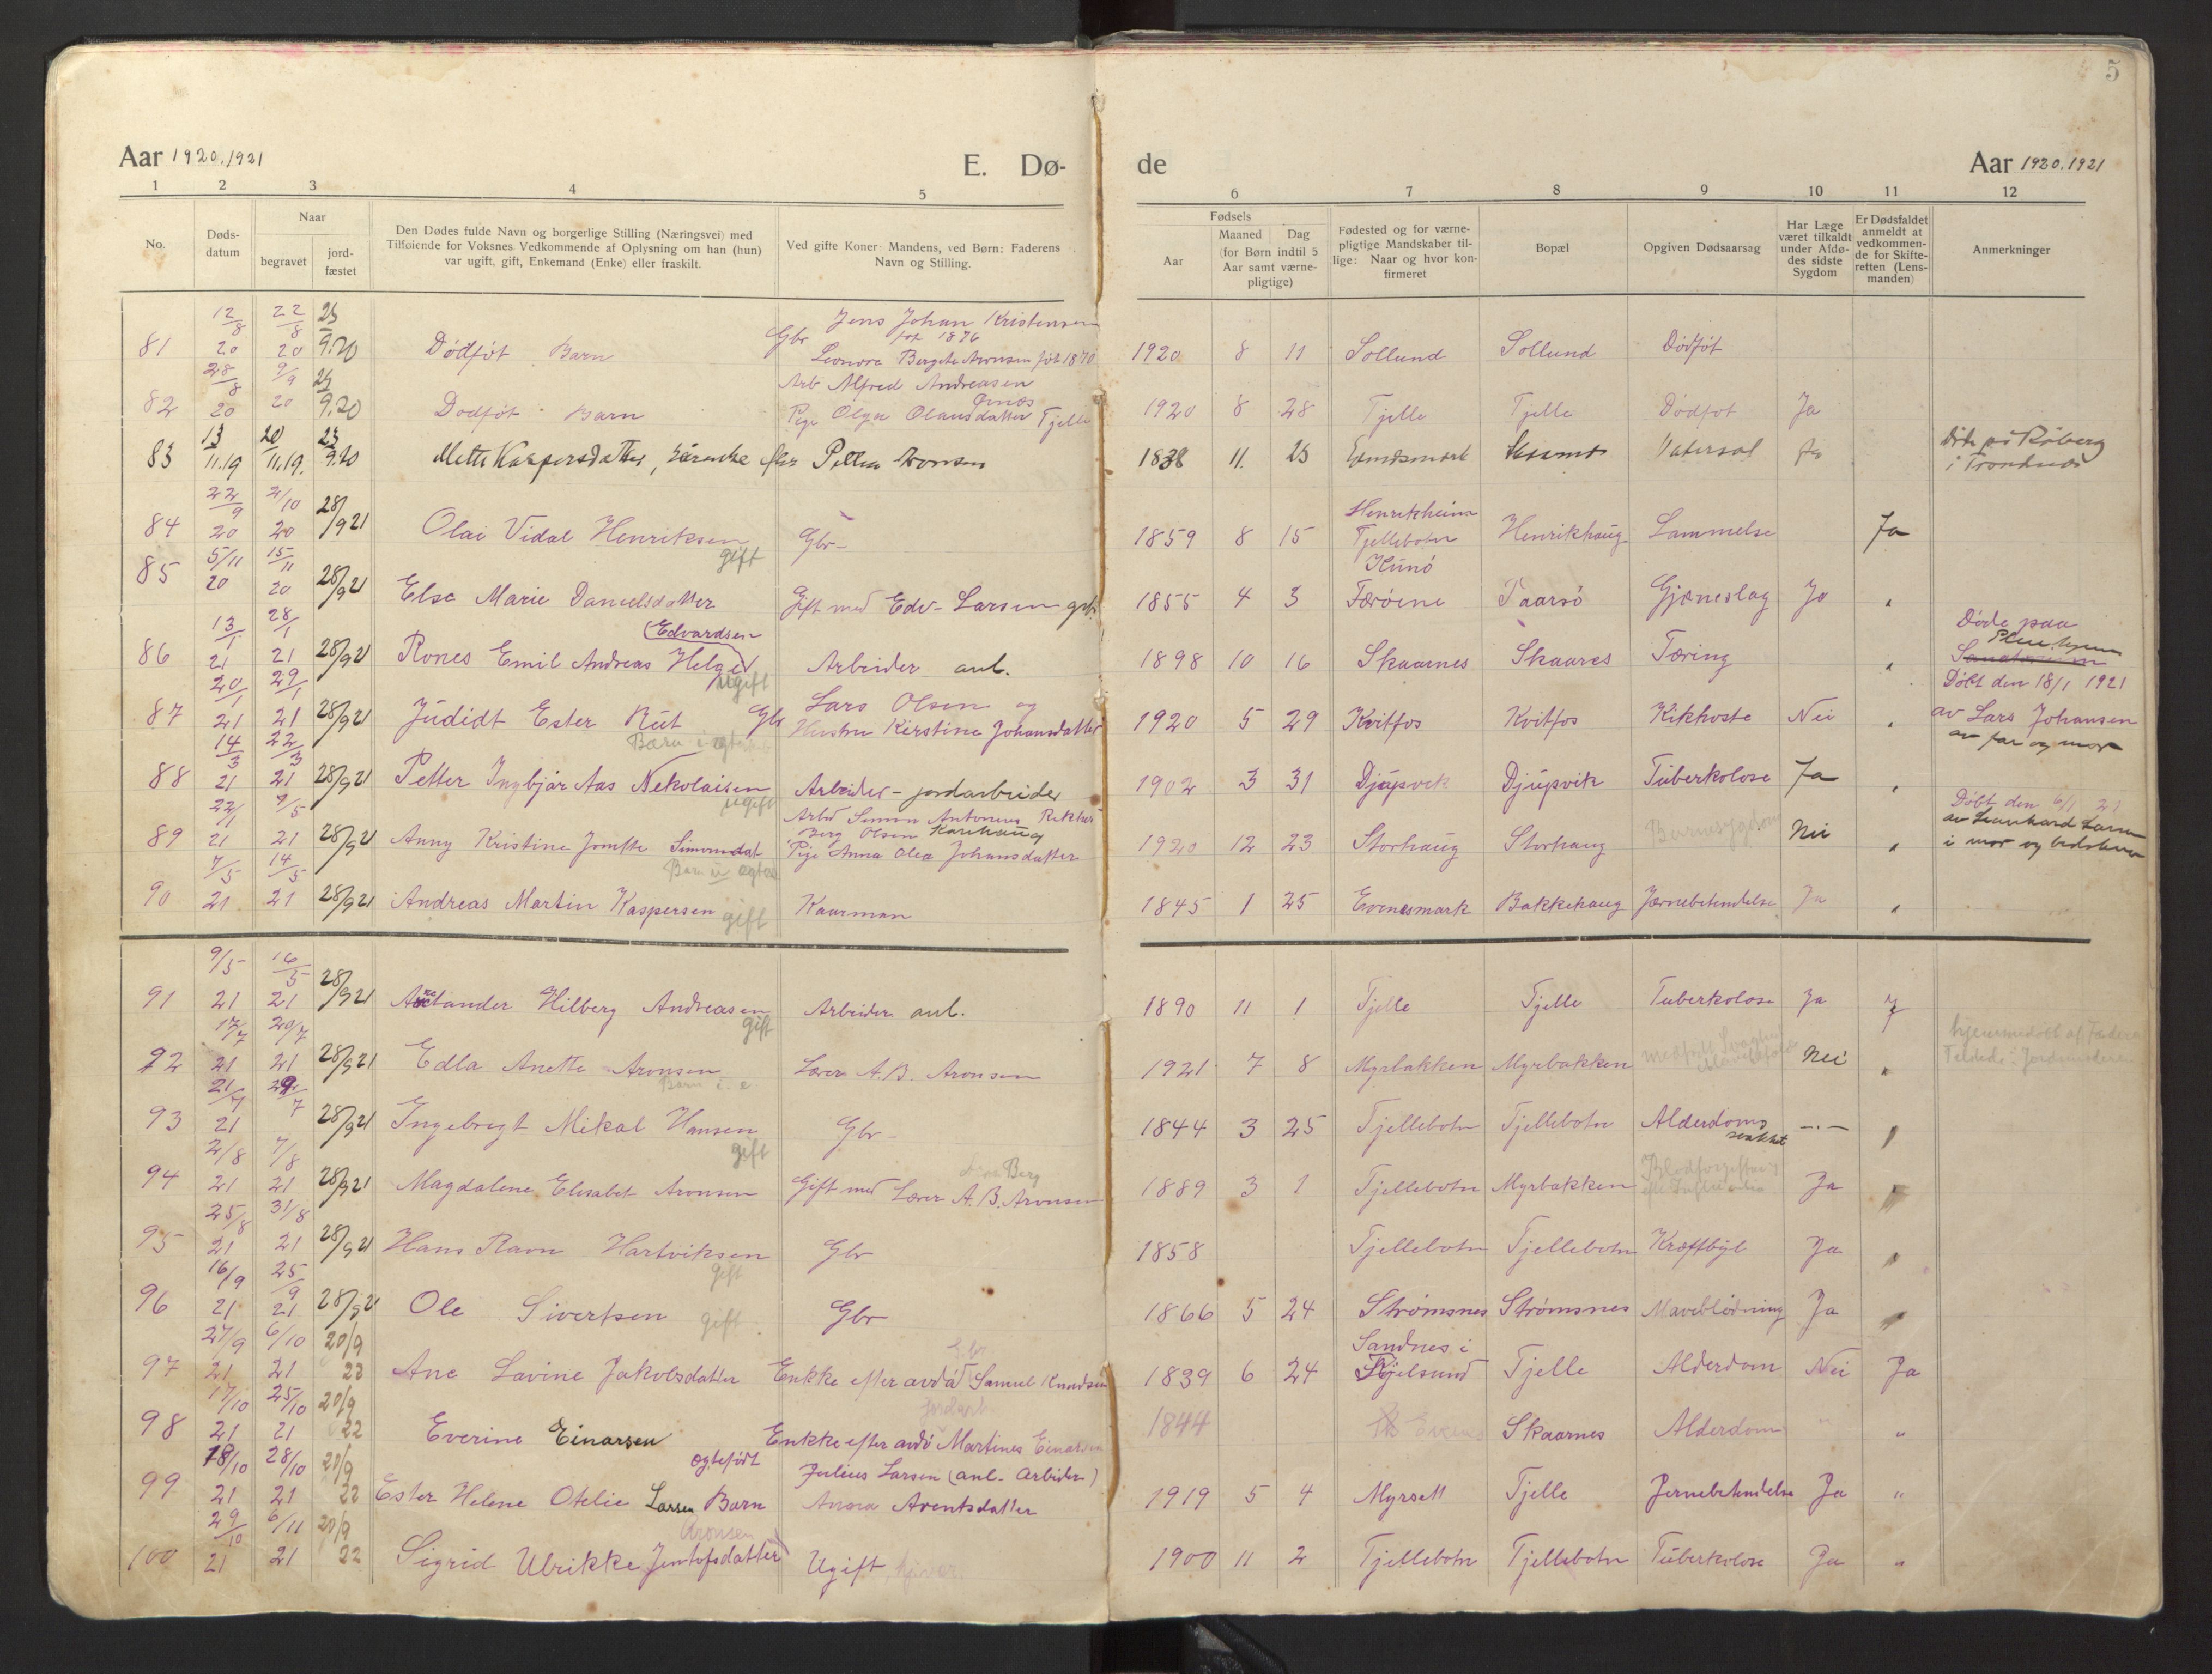 5
Aar 1920.1921 E. Dø- de Aar 1920.1921
1 2 3 4 5 6 7 8 9 10 11 12
No.
Døds-
datum
Naar
begravet
jord-
fæstet
Den Dødes fulde Navn og borgerlige Stilling (Næringsvei) med
Tilføiende for Voksnes Vedkommende af Oplysning om han (hun)
var ugift, gift, Enkemand (Enke) eller fraskilt.
Ved gifte Koner: Mandens, ved Børn: Faderens
Navn og Stilling.
Fødsels
Aar
Maaned Dag
(for Børn indtil 5
Aar samt værne-
pligtige)
Fødested og for værne-
pligtige Mandskaber til-
lige: Naar og hvor kon-
firmeret
Bopæl
Opgiven Dødsaarsag
Har Læge
været tilkaldt
under Afdø-
des sidste
Sygdom
Er Dødsfaldet
anmeldt at
vedkommen-
de for Skifte-
retten (Lens-
manden)
Anmerkninger
12/8 22/8 Jens Johan Kristensen
Gbr føt 1876
81 20 20 9.20 Dødføt Barn Leonora Bergete Aronsen føt 1870 1920 8 11 Sollund Sollund Dødføt
28/8 9/9 Arb Alfred Andreasen
82 20 20 9.20 Dødføt Barn Pige Olga Olausdatter Tjelle 1920 8 28 Tjelle Tjelle Dødføt Ja
13 20 23
83 11.19 11.19. 9.20 Mette Kaspersdatter, efter Petter Aronsen 1838 11. 23
i Trondenæs
22/9 2/10 28/9 21
84 20 20 Olai Vidal Henriksen gift Gbr- 1859 8 15 Henrikheim Tjellebotn Henrikhaug Lammelse Ja
5/11 15/11
85 20 20 28/9 21 Else Marie Danielsdatter Gift med Edv- Larsen gbr 1855 4 3 Kunø Færøene Taarsø Gjæneslag Ja "
13/1 28/1 (Edvardsen
86 21 21 28/9 21 Rones Emil Andreas Helge ugift Arbeider anl. 1898 10 16 Skaarnes Skaarnes Tæring " Døde paa
Pleiehjem
Sanatorium
20/1 29/1 Lars Olsen og Døbt den 18/1 1921
87 21 21 28/9 21 Judidt Ester Rut Gbr Hustru Kirstine Johansdatter 1920 5 29 Kvitfos Kvitfos Kikhoste Nei " av Lars Johansen
av far og mor
14/3 22/3
88 21 21 28/9 21 Petter Ingbjår Aas Nekolaisen ugift Arbeider - jordarbeider 1902 3 31 Djupvik Djupvik Tuberkolose Ja "
22/1 Arbd Simon Antonius Døbt den 6/1 21
Berg Olsen Karihaug
89 21 21 28/9 21 Anny Kristine Simonsdat Pige Anna Olea Johansdatter 1920 12 23 Storhaug Storhaug Barnesygdom Nei "
i mor og
7/5 14/5
90 21 21 28/9 21 Andreas Martin Kaspersen gift Kaarman 1845 1 25 Evenesmark Bakkehaug Jærnebetendelse Ja "
9/5 16/5
91 21 21 28/9 21 Hilberg Andreasen gift Arbeider anl. 1890 11 1 Tjelle Tjelle Tuberkolose Ja
17/7 20/7
92 21 21 28/9 21 Edla Anette Aronsen Barn i. e. Lærer A.B. Aronsen 1921 7 8 Myrbakken Myrbakken Nei "
21/7 29/7
93 21 28/9 21 Ingebregt Mikal Hansen gift Gbr- 1844 3 25 Tjellebotn Tjellebotn Alderdoms svakhet -.- "
2/8 7/8 Berg
94 21 21 28/9 21 Magdalene Elisabet Aronsen Gift med Lærer A.B. Aronsen 1889 3 1 Tjellebotn Myrbakken Blodforgiftning Ja "
25/8 31/8
95 21 21 28/9 21 Hans Ravn Hartviksen gift Gbr 1858 Tjellebotn Tjellebotn Kræftbyl Ja "
16/9 25/9
96 21 21 28/9 21 Ole Sivertsen gift Gbr 1866 5 24 Strømsnes Strømsnes Maveblødning Ja "
27/9 6/10 20/9 Sandnes i
97 21 21 22 Ane Lavine Jakobsdatter Enkke efter avdød Samuel Knudsen 1839 6 24 Tjelle Alderdom Nei Ja
17/10 25/10 20/9 jordarb
98 21 21 22 Everine Einarsen Enkke efter avdø Martines Einarsen 1844 Skaarnes Alderdom " "
18/10 28/10 20/9 ogtefødt Julius Larsen (anl. Arbider)
99 21 21 22 Ester Helene Otelie Larsen Barn Aurora Arentsdatter 1919 5 4 Myrsett Tjelle Jernebetendelse Ja "
29/10 6/11 20/9 Aronsen
100 21 21 22 Sigrid Ulrikke Jentofsdatter Ugift 1900 11 2 Tjellebotn Tjellebotn Tuberkolose Ja "